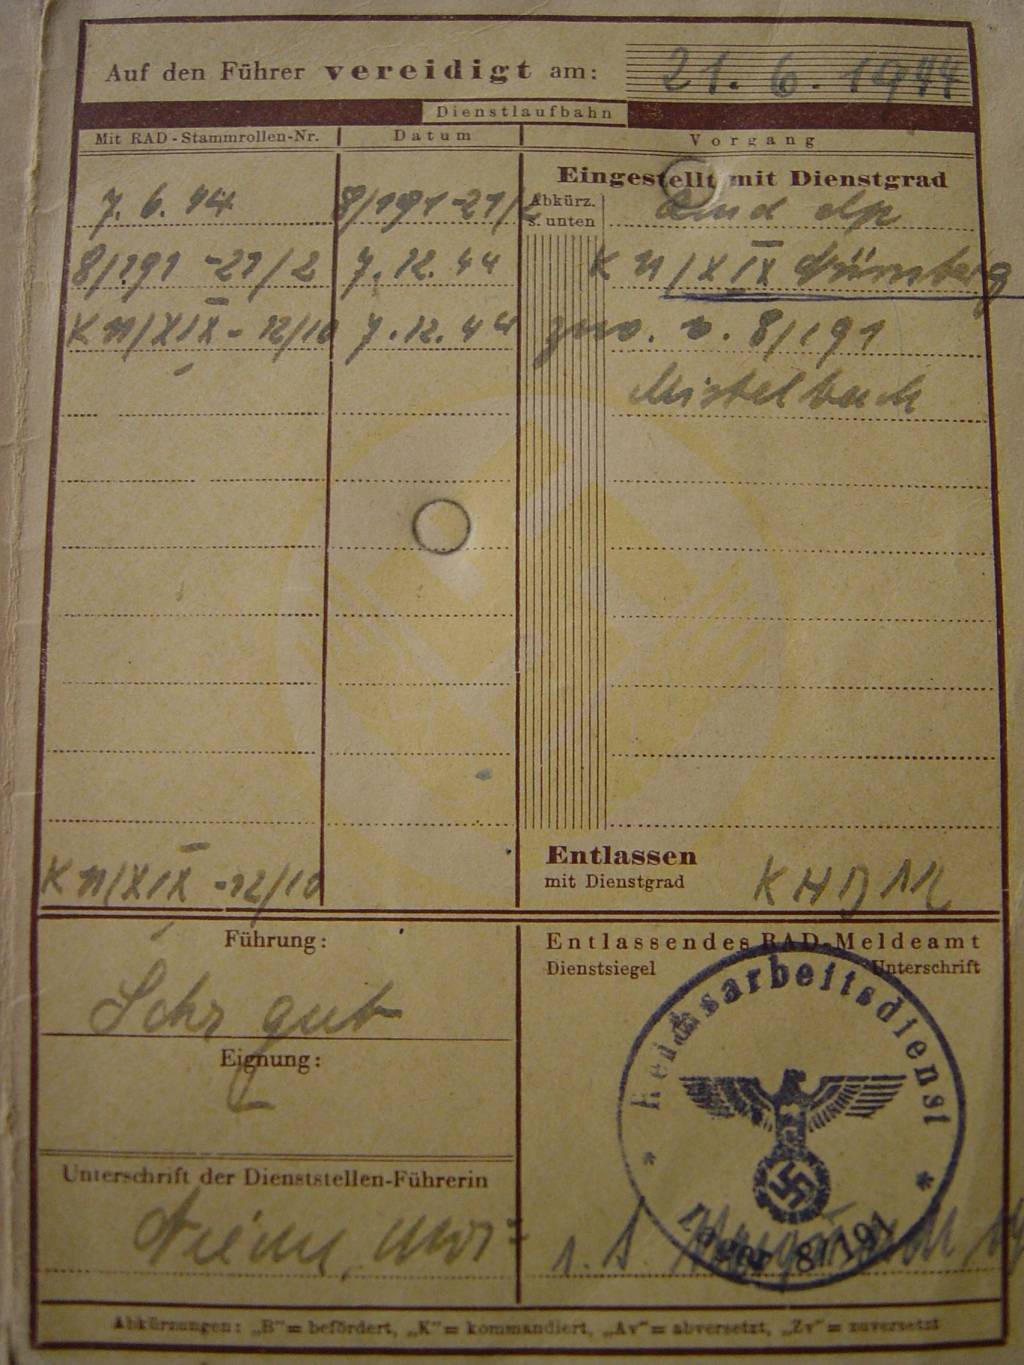 Auf den Führer vereidigt am: 21. 6. 1944
Dienstlaufbahn
Mit RAD-Stammrollen-Nr. Datum Vorgang
Eingestellt mit Dienstgrad
Abkürz.
s. unten
7. 6. 44 8/191-21/2
8/191 -21/2 7.12.44 K 11/XIX Nürnberg
K 11/XIX - 12/10 7.12.44 zuv. v. 8/191
Mistelbach
K 11/XIX -12/10
Entlassen
mit Dienstgrad KHD
Führung:
Sehr gut
Eignung:
Entlassendes RAD-Meldeamt
Dienstsiegel Unterschrift
Reichsarbeitsdienst
Lager 8/191
Unterschrift der Dienststellen-Führerin
Abkürzungen: „B"= befördert, „K"= kommandiert, „Av"= abversetzt, „Zv"= zuversetzt